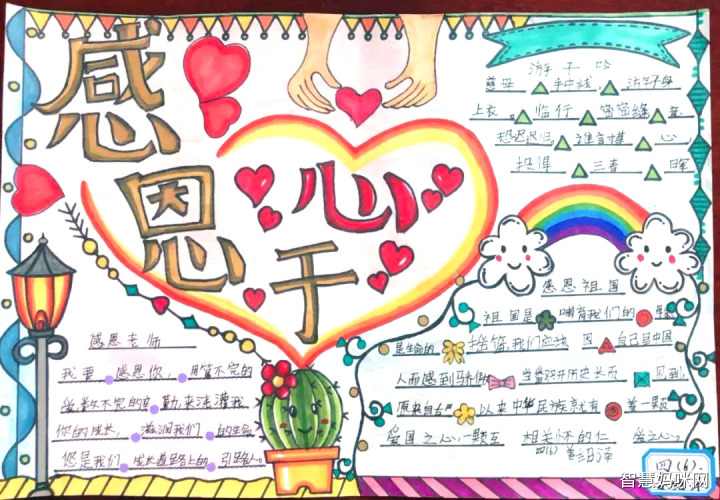 感恩
心
于
游子吟
慈母 手中线
上衣 临行 密密缝 意
恐迟迟归 谁言寸草 心
报得 三春 晖
感恩祖国
祖国是 哺育我们的
是生命的 摇篮,我们应该 因 自己是中国
人而感到骄傲 当翻开历史长 见到
原来自古 以来中华民族就有 着一颗
爱国之心,一颗互 相关怀的仁 爱之心
四(6)
感恩老师
我要 感恩你, 用管不完的
爱,数不完的 勤来浇灌我
你的成长, 滋润我们 的生命
您是我们 成长道路上的 引路人。
四(6)
智慧妈咪网